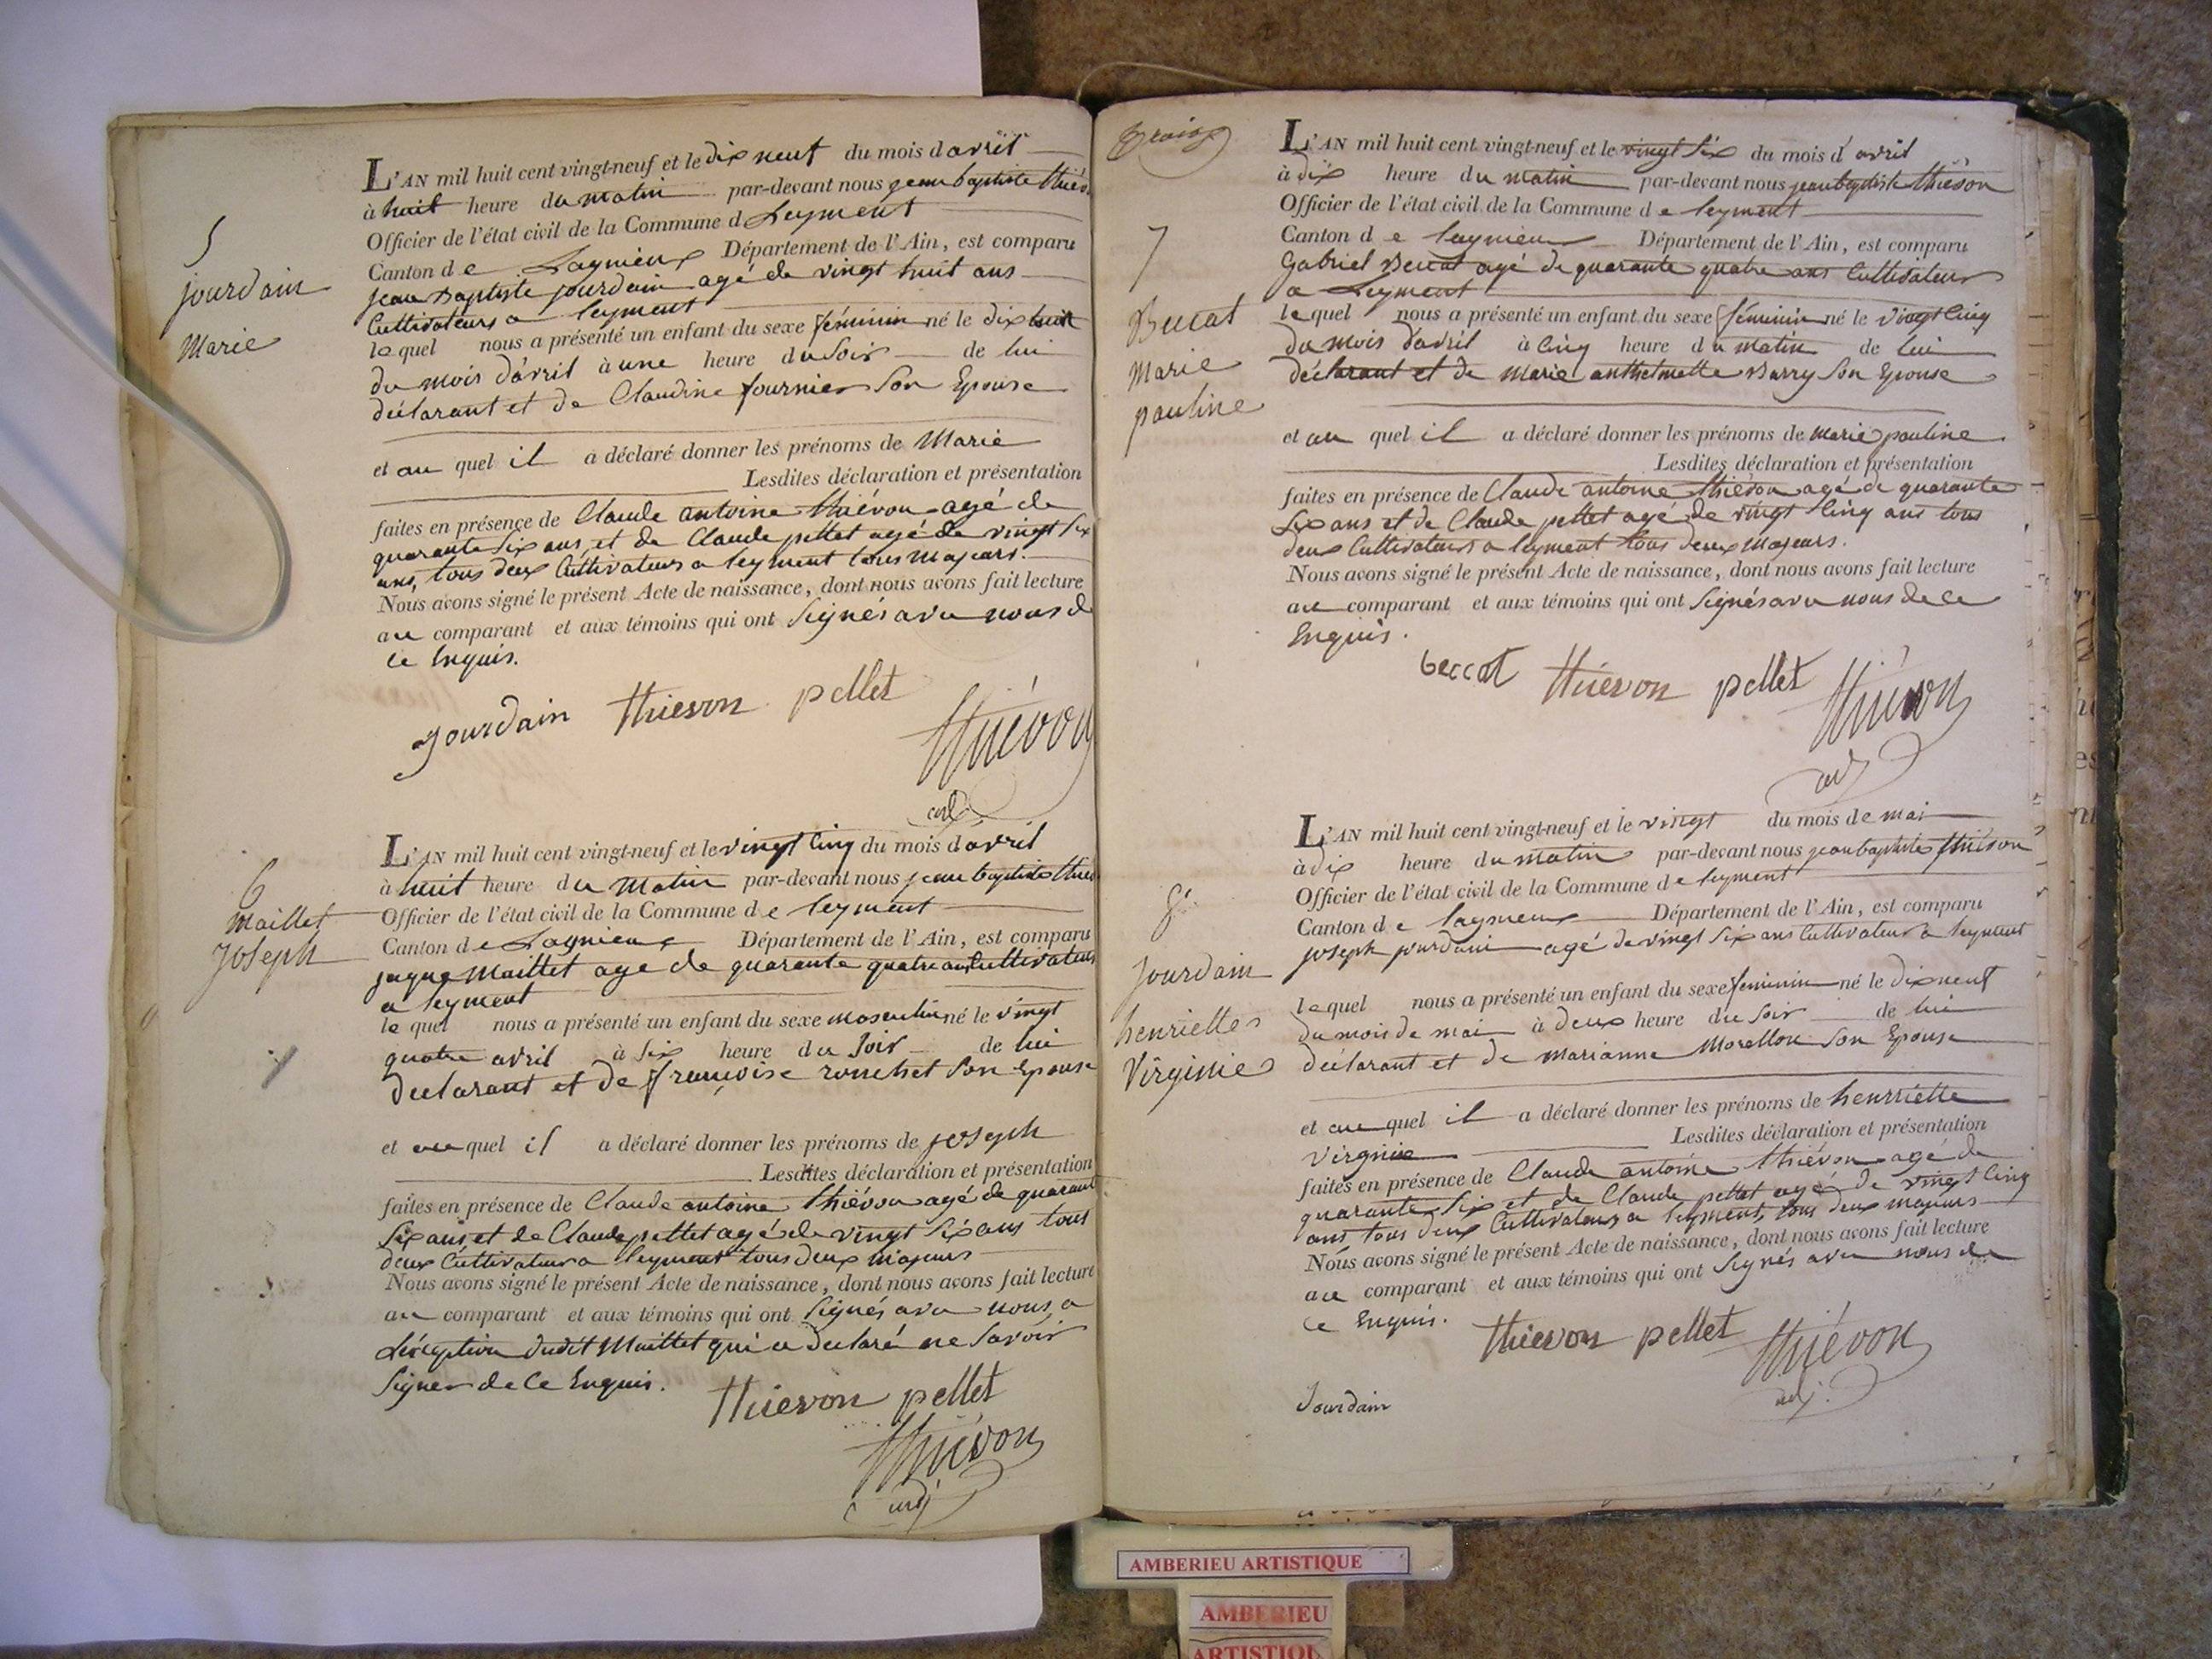 5
jourdain
Marie
L'AN mil huit cent vingt-neuf et le dix neuf du mois d'avril
à huit heure du matin par-devant nous jean baptiste thiév
Officier de l'état civil de la Commune d Leyment
Canton de Lagnieux Département de l'Ain, est comparu
jean Baptiste jourdain agé de vingt huit ans
Cultivateurs a leyment
le quel nous a présenté un enfant du sexe féminin né le dix huit
du mois d'avril à une heure du Soir de lui
déclarant et de Claudine fournier Son Epouse
et au quel il a déclaré donner les prénoms de Marie
Lesdites déclaration et présentation
faites en présence de Claude antoine thiévon agé de
quarante Six ans, et de Claude pellet agé de vingt Six
ans, tous deux Cultivateurs a leyment tous majeurs.
Nous avons signé le présent Acte de naissance, dont nous avons fait lecture
au comparant et aux témoins qui ont Signés avec nous d
ce Enquis.
Jourdain thievon pellet
thiévon
adj
6
Maillet
Joseph
L'AN mil huit cent vingt-neuf et le vingt Cinq du mois d'avril
à huit heure du Matin par-devant nous jean baptiste thiev
Officier de l'état civil de la Commune de leyment
Canton de Lagnieux Département de l'Ain, est comparu
jaque Maillet agé de quarante quatre ans Cultivateur
a leyment
le quel nous a présenté un enfant du sexe masculin né le vingt
quatre avril à Six heure du Soir de lui
declarant et de françoise ronchet Son Epouse
et au quel il a déclaré donner les prénoms de joseph
Lesdites déclaration et présentation
faites en présence de Claude antoine thiévon agé de quarant
Six ans et de Claude pellet agé de vingt Six ans tous
deux Cultivateurs a leyment tous deux majeurs
Nous avons signé le présent Acte de naissance, dont nous avons fait lecture
au comparant et aux témoins qui ont Signés avec nous, a
L'éxception dudit Maillet qui a declaré ne Savoir
Signer de Ce Enquis.
thievon pellet
thiévon
adj
7
Beccat
Marie
pauline
L'AN mil huit cent vingt-neuf et le vingt Six du mois d'avril
à dix heure du matin par-devant nous jean baptiste thiévon
Officier de l'état civil de la Commune de leyment
Canton de lagnieux Département de l'Ain, est comparu
Gabriel Beccat agé de quarante quatre ans Cultivateur
a Leyment
le quel nous a présenté un enfant du sexe féminin né le vingt Cinq
du mois d'avril à Cinq heure du matin de lui
déclarant et de Marie anthelmette Barry Son Epouse
et au quel il a déclaré donner les prénoms de Marie pauline
Lesdites déclaration et présentation
faites en présence de Claude antoine thiévon agé de quarante
Six ans et de Claude pellet agé de vingt Cinq ans tous
deux Cultivateurs a leyment tous deux majeurs.
Nous avons signé le présent Acte de naissance, dont nous avons fait lecture
au comparant et aux témoins qui ont Signés avec nous de ce
Enquis.
beccat thievon pellet thiévon
adj
8
Jourdain
henriette
Virginie
L'AN mil huit cent vingt-neuf et le vingt du mois de mai
à dix heure du matin par-devant nous jean baptiste thiévon
Officier de l'état civil de la Commune de leyment
Canton de lagnieux Département de l'Ain, est comparu
joseph jourdain agé de vingt Six ans Cultivateur a leyment
le quel nous a présenté un enfant du sexe feminin né le dix neuf
du mois de mai à deux heure du Soir de lui
déclarant et de Marianne Morellon Son Epouse
et au quel il a déclaré donner les prénoms de henriette
Virginie Lesdites déclaration et présentation
faites en présence de Claude antoine thiévon agé de
quarante Six et de Claude pellet agé de vingt Cinq
ans tous deux Cultivateurs a leyment, tous deux majeurs
Nous avons signé le présent Acte de naissance, dont nous avons fait lecture
au comparant et aux témoins qui ont Signés avec nous de
ce Enquis.
thievon pellet thiévon
adj.
Jourdain
AMBERIEU ARTISTIQUE
AMBERIEU
ARTISTIQU